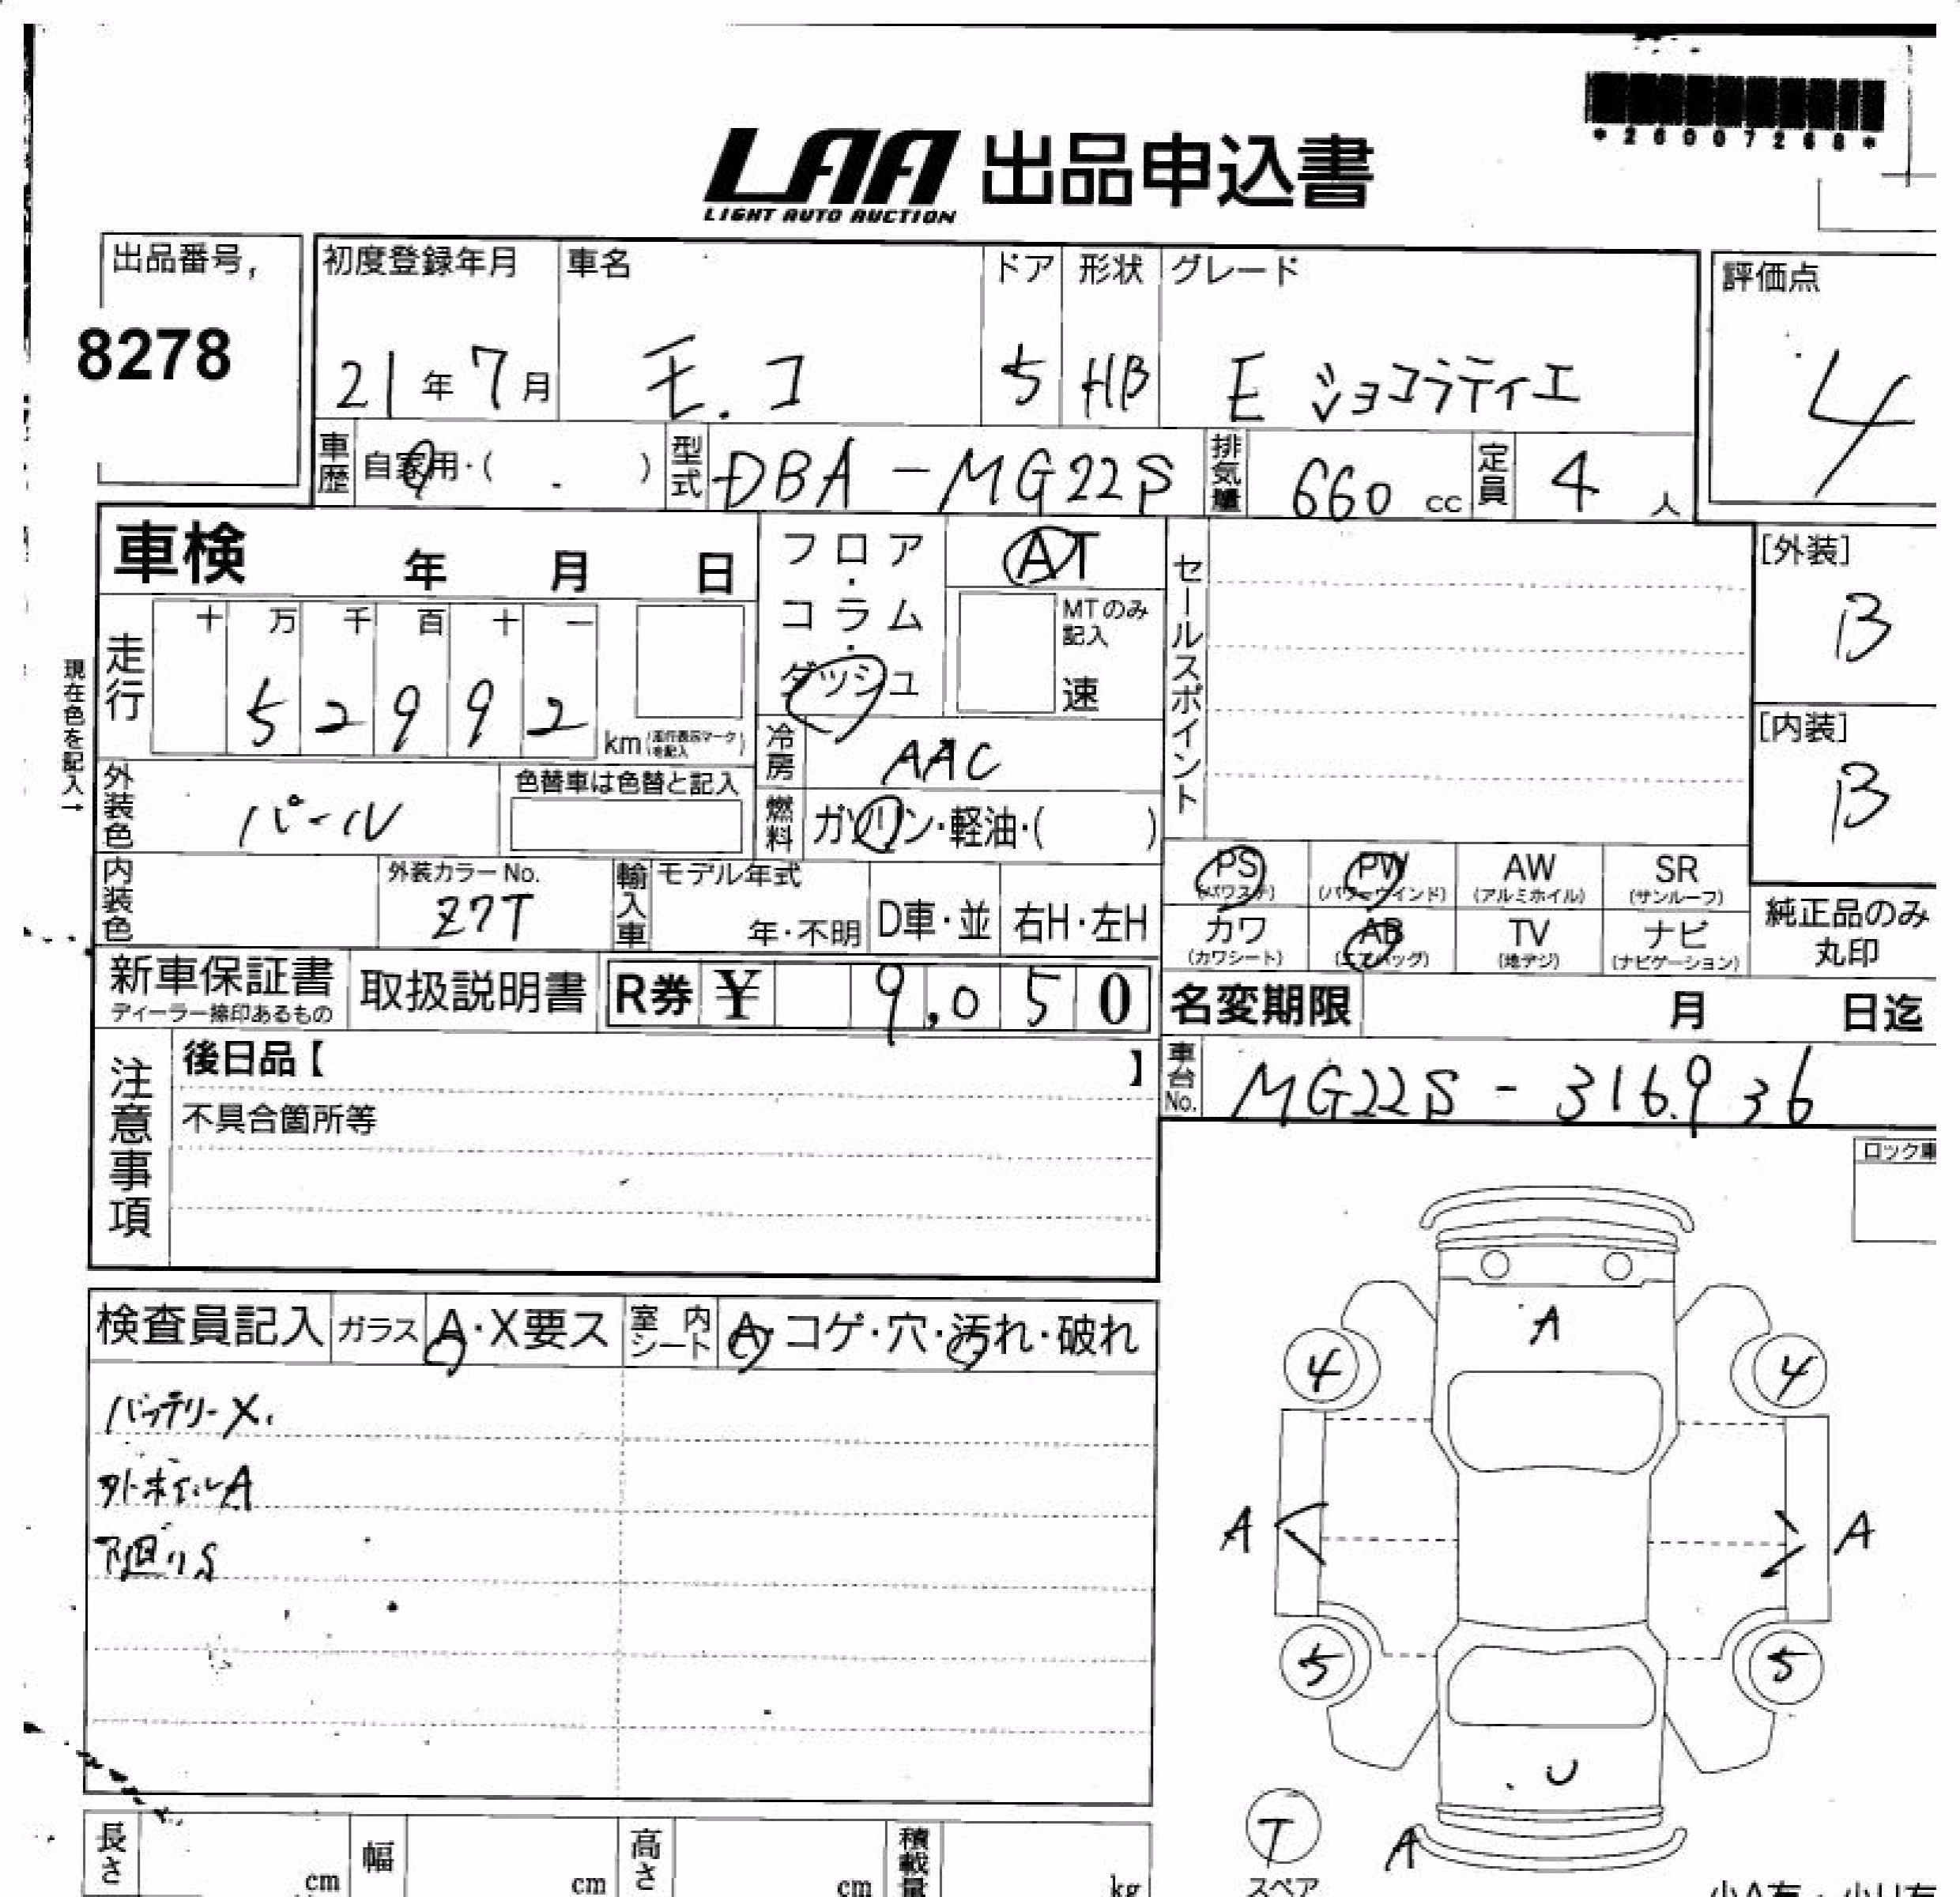 *26007268*
LAA 出品申込書
LIGHT AUTO AUCTION
出品番号
8278
初度登録年月
21年7月
車名
モコ
ドア
5
形状
HB
グレード
E ショコラティエ
評価点
4
車歴 自家用・( )
型式 DBA-MG22S
排気量 660 cc
定員 4 人
車検 年 月 日
フロア・コラム・ダッシュ
AT
MTのみ記入
速
セールスポイント
[外装]
B
[内装]
B
現在色を記入→
走行
十 万 千 百 十 一
5 2 9 9 2 km(走行表示マークを記入)
冷房 AAC
外装色 パール
色替車は色替と記入
燃料 ガソリン・軽油・( )
内装色
外装カラーNo.
Z7T
輸入車 モデル年式
年・不明
D車・並
右H・左H
PS (パワステ)
PW (パワーウインド)
AW (アルミホイル)
SR (サンルーフ)
カワ (カワシート)
AB (エアバッグ)
TV (地デジ)
ナビ (ナビゲーション)
純正品のみ
丸印
新車保証書
ディーラー捺印あるもの
取扱説明書
R券 ¥ 9,050
名変期限 月 日迄
注意事項
後日品【 】
不具合箇所等
車台No. MG22S-316936
ロック車
検査員記入
ガラス A・X要ス
室内シート A・コゲ・穴・汚れ・破れ
バッテリーX.
外ホイルA
下廻りS
A
4 4
A A
5 5
U
T
A
スペア
長さ cm
幅 cm
高さ cm
積載量 kg
小A有・小U有